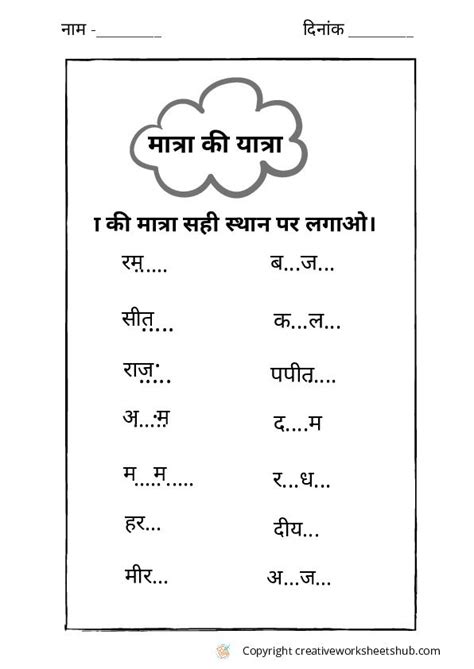 नाम -_________ दिनांक _________
मात्रा की यात्रा
ा की मात्रा सही स्थान पर लगाओ।
रम..... ब...ज...
सीत..... क...ल...
राज..... पपीत.....
अ.....म द....म
म....म..... र...ध...
हर... दीय...
मीर... अ...ज...
Copyright creativeworksheetshub.com